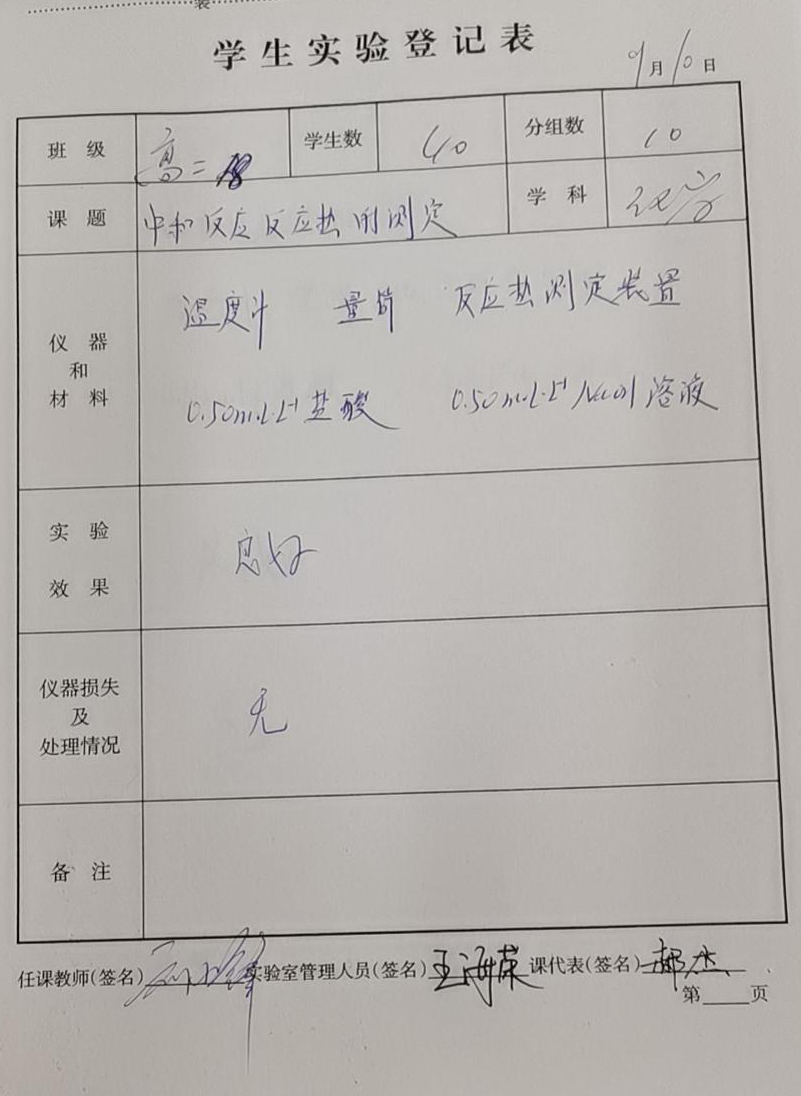 装
学生实验登记表
9月10日
班级 高二 18 学生数 40 分组数 10
课题 中和反应反应热的测定 学科 化学
仪器和材料 温度计 量筒 反应热测定装置
0.50mol·L⁻¹盐酸 0.50mol·L⁻¹NaOH溶液
实验效果 良好
仪器损失及处理情况 无
备注
任课教师(签名) 实验室管理人员(签名) 王海荣 课代表(签名) 郝杰
第 页